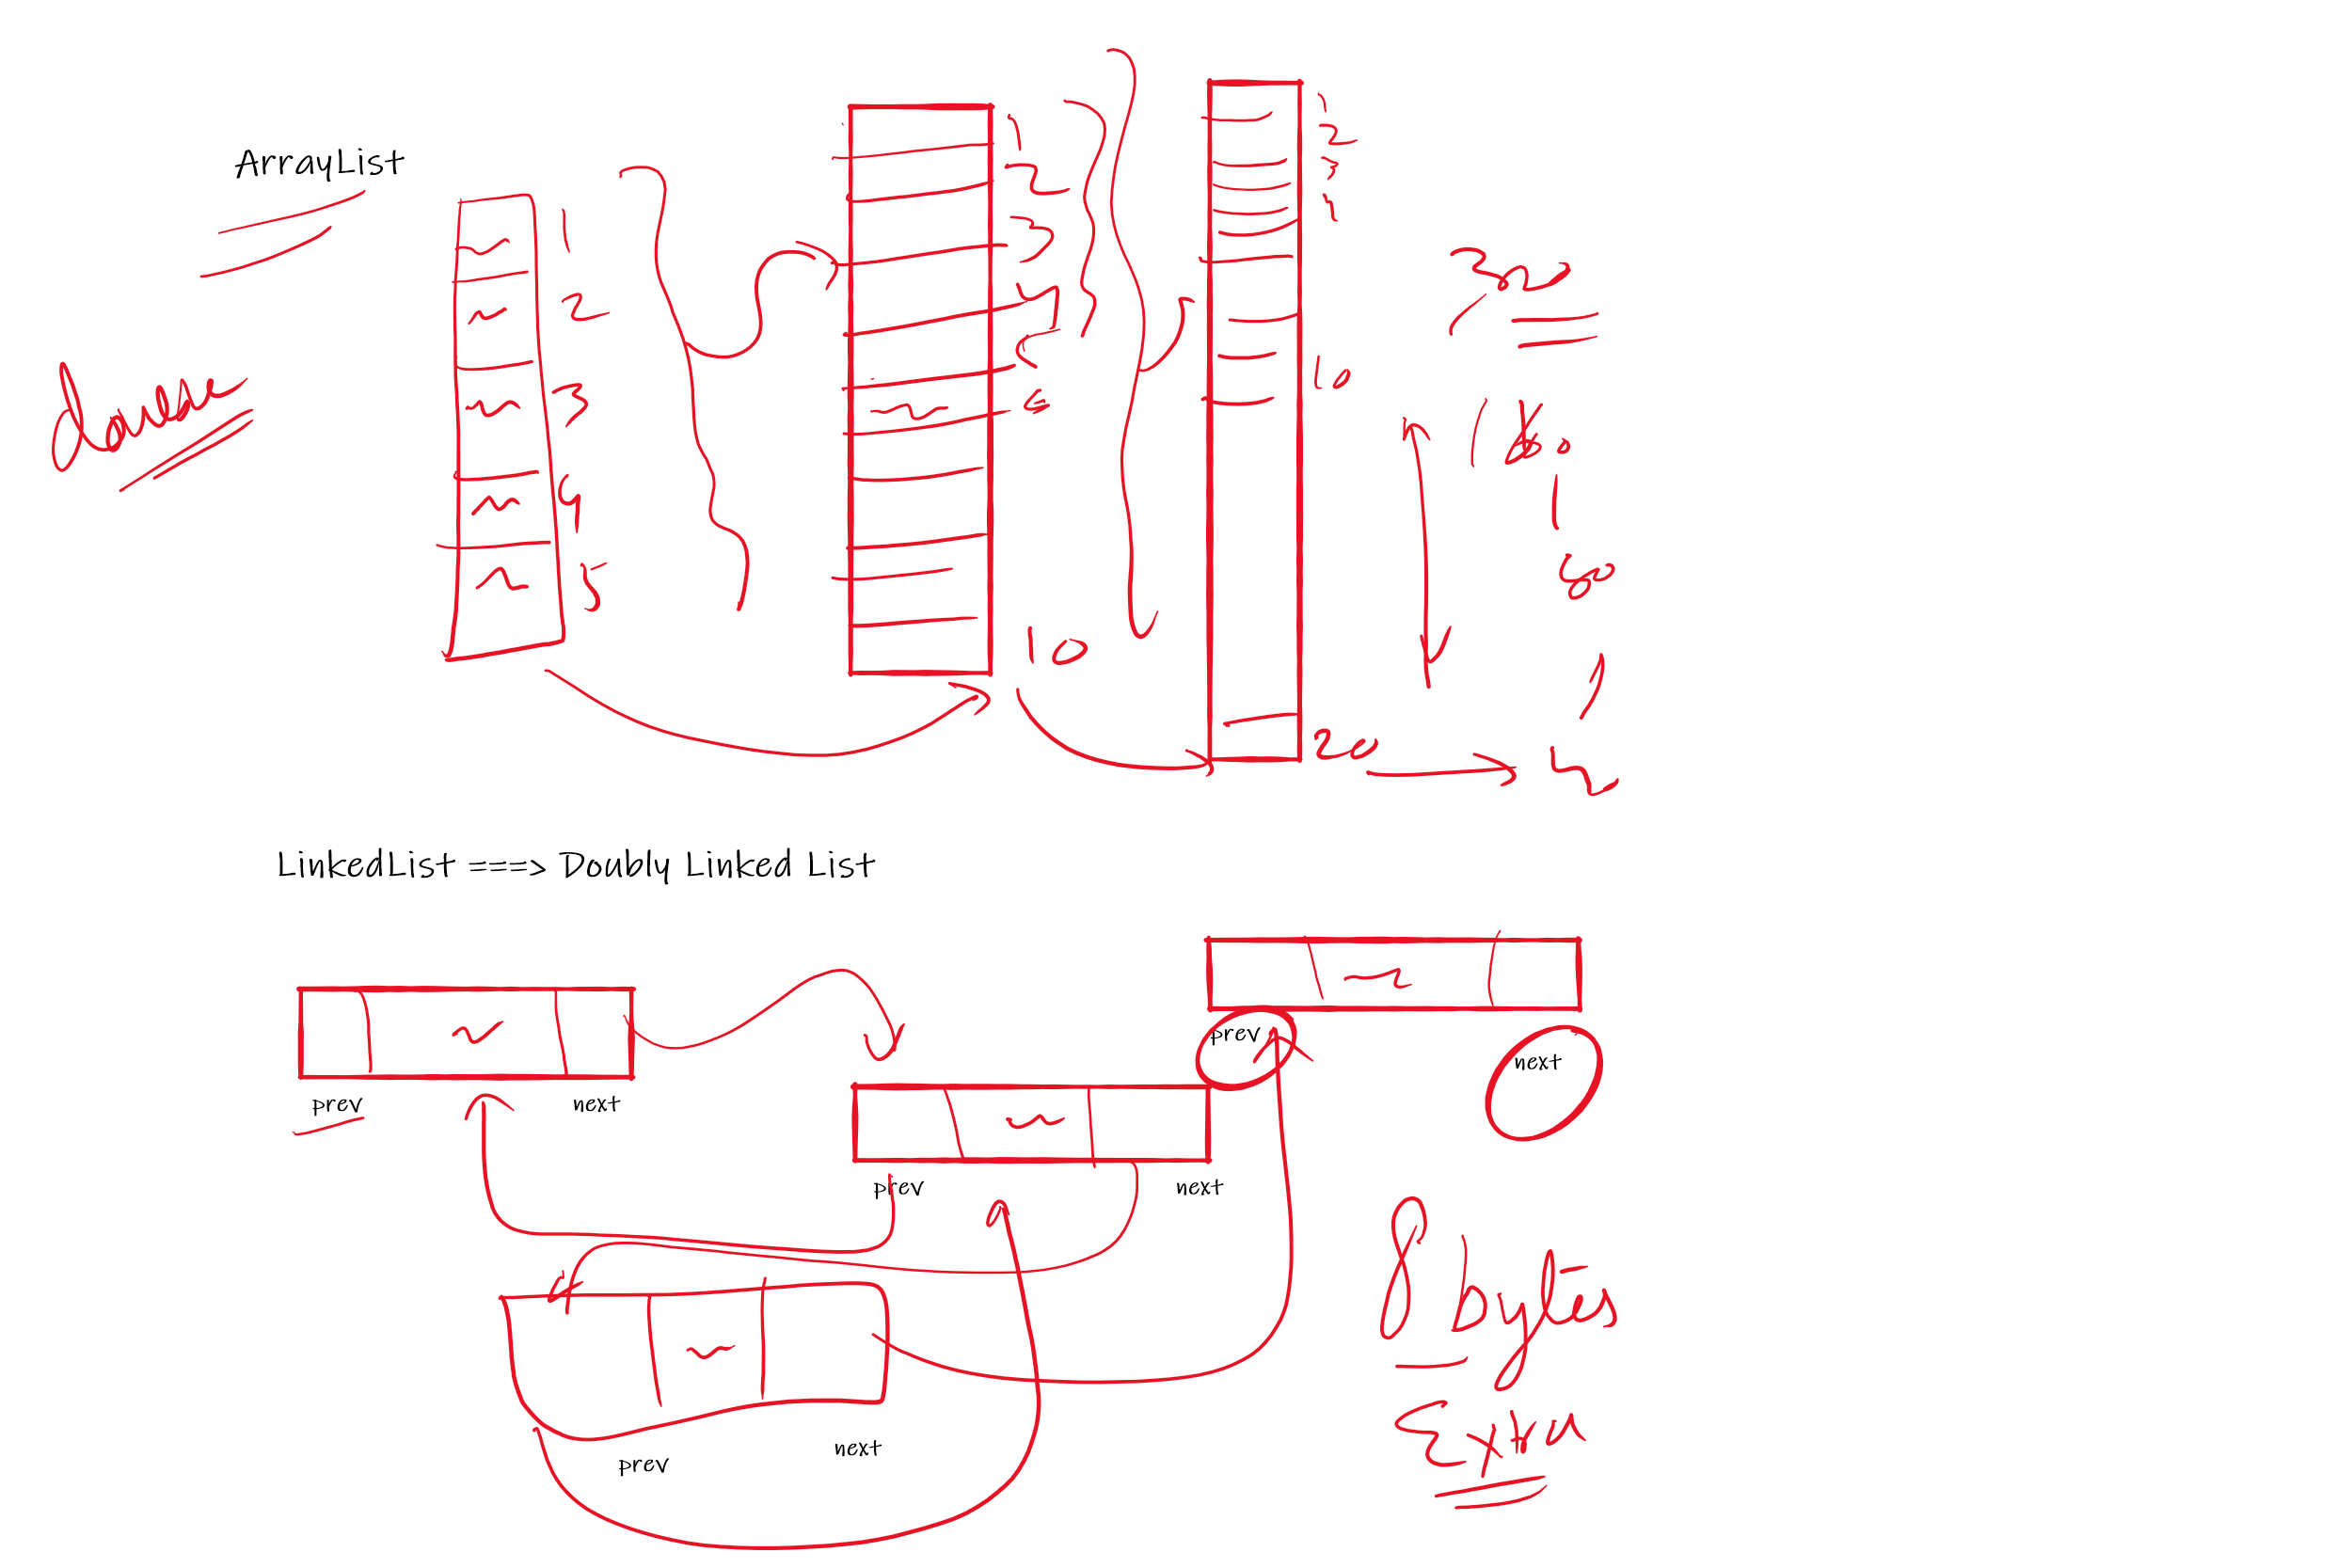 ArrayList
double
1
2
3
4
5
1
2
3
4
5
6
10
1
2
3
4
10
20
320
160
80
LinkedList ===> Doubly Linked List
prev
next
prev
next
prev
next
prev
next
8 bytes
Extra